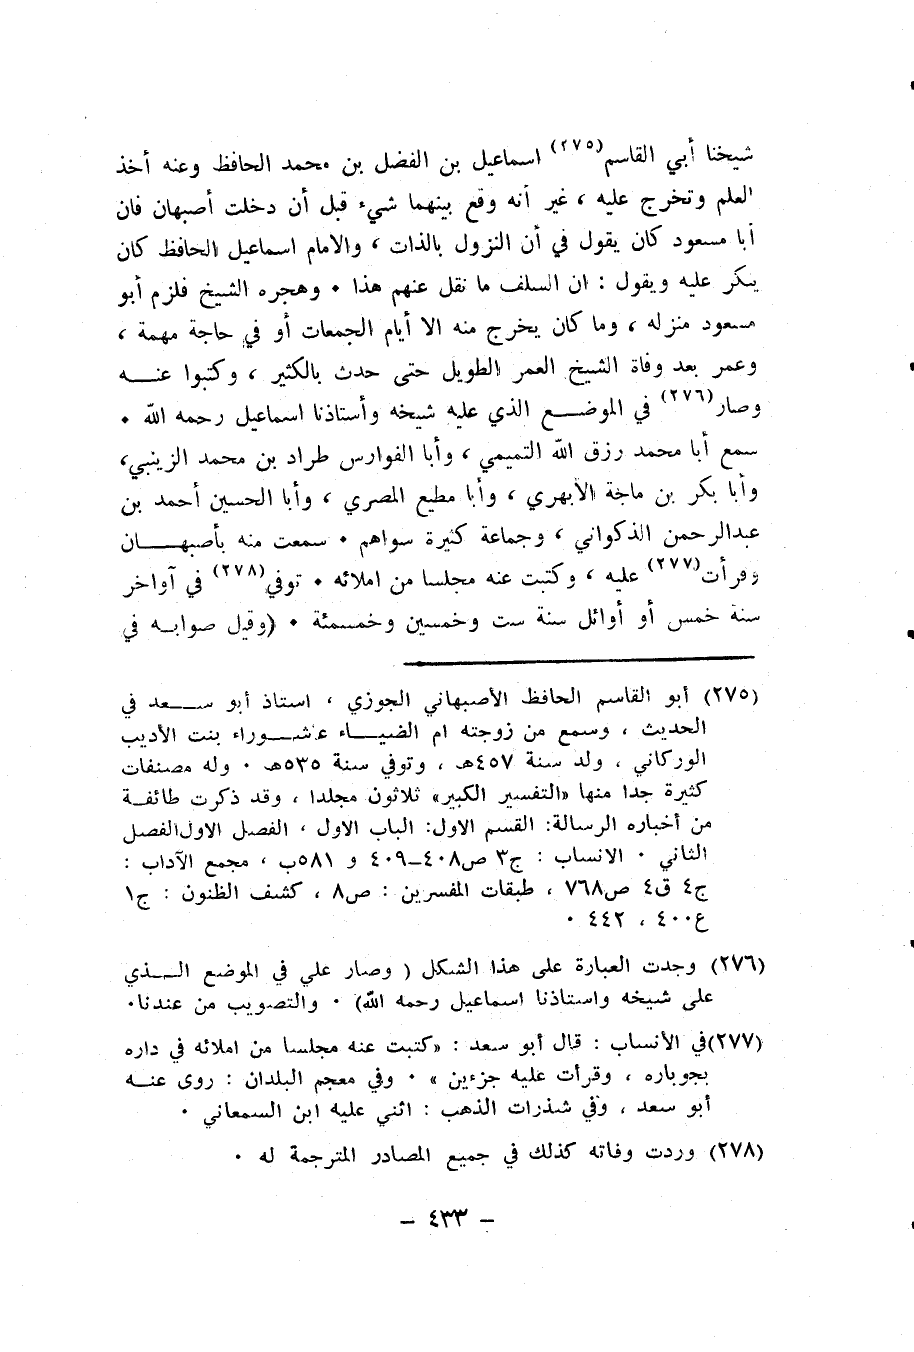 شيخنا أبي القاسم(٢٧٥) اسماعيل بن الفضل بن محمد الحافظ وعنه أخذ
العلم وتخرج عليه ، غير أنه وقع بينهما شيء قبل أن دخلت أصبهان فان
أبا مسعود كان يقول في أن النزول بالذات ، والامام اسماعيل الحافظ كان
ينكر عليه ويقول : ان السلف ما نقل عنهم هذا ٠ وهجره الشيخ فلزم أبو
مسعود منزله ، وما كان يخرج منه الا أيام الجمعات أو في حاجة مهمة ،
وعمر بعد وفاة الشيخ العمر الطويل حتى حدث بالكثير ، وكتبوا عنـــه
وصار(٢٧٦) في الموضـــع الذي عليه شيخه وأستاذنا اسماعيل رحمه الله ٠
سمع أبا محمد رزق الله التميمي ، وأبا الفوارس طراد بن محمد الزينبي،
وأبا بكر بن ماجة الأبهري ، وأبا مطيع المصري ، وأبا الحسين أحمد بن
عبدالرحمن الذكواني ، وجماعة كثيرة سواهم ٠ سمعت منه بأصبهـــان
وقرأت(٢٧٧) عليه ، وكتبت عنه مجلسا من املائه ٠ توفي(٢٧٨) في آواخر
سنة خمس أو أوائل سنة ست وخمسين وخمسمئة ٠ (وقيل صوابـه في
(٢٧٥) أبو القاسم الحافظ الأصبهاني الجوزي ، استاذ أبو ســـعد في
الحديث ، وسمع من زوجته ام الضيـــاء عاشـــوراء بنت الأديب
الوركاني ، ولد سنة ٤٥٧هـ ، وتوفي سنة ٥٣٥هـ ٠ وله مصنفات
كثيرة جدا منها «التفسير الكبير» ثلاثون مجلدا ، وقد ذكرت طائفـة
من أخباره الرسالة: القسم الاول: الباب الاول ، الفصل الاول‌الفصل
الثاني ٠ الانساب : ج٣ ص٤٠٨-٤٠٩ و ٥٨١ب ، مجمع الآداب :
ج٤ ق٤ ص٧٦٨ ، طبقات المفسرين : ص٨ ، كشف الظنون : ج١
ع٤٠٠ ، ٤٤٢ ٠
(٢٧٦) وجدت العبارة على هذا الشكل ( وصار علي في الموضع الـــذي
على شيخه واستاذنا اسماعيل رحمه الله) ٠ والتصويب من عندنا٠
(٢٧٧)في الأنساب : قال أبو سعد : «كتبت عنه مجلسا من املائه في داره
بجوباره ، وقرأت عليه جزءين » ٠ وفي معجم البلدان : روى عنـــه
أبو سعد ، وفي شذرات الذهب : اثني عليه ابن السمعاني ٠
(٢٧٨) وردت وفاته كذلك في جميع المصادر المترجمة له ٠
- ٤٣٣ -